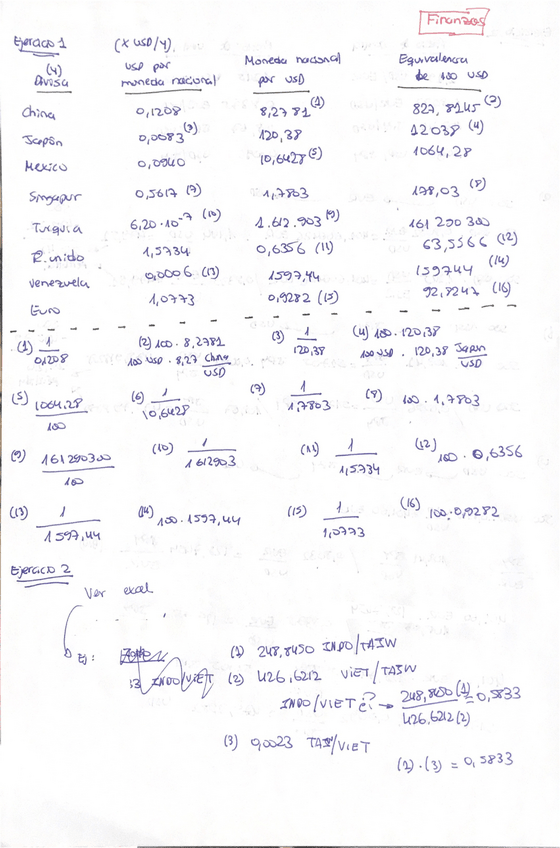 Finanzas
Ejercicio 1 (X USD/Y)
(Y) USD por Moneda nacional Equivalencia
Divisa moneda nacional por USD de 100 USD
China 0,1208 8,2781 (1) 827,8145 (2)
Japón 0,0083 (3) 120,38 12038 (4)
Mexico 0,0940 10,6428 (5) 1064,28
Singapur 0,5617 (7) 1,7803 178,03 (8)
Turquia 6,20·10⁻⁷ (10) 1.612.903 (9) 161290300
R.unido 1,5734 0,6356 (11) 63,5566 (12)
Venezuela 0,0006 (13) 1597,44 159744 (14)
Euro 1,0773 0,9282 (15) 92,8247 (16)
(1) 1/0,1208 (2) 100 · 8,2781 (3) 1/120,38 (4) 100 · 120,38
100 USD · 8,27 China/USD 100 USD · 120,38 Japon/USD
(5) 1064,28/100 (6) 1/10,6428 (7) 1/1,7803 (8) 100 · 1,7803
(9) 161290300/100 (10) 1/1612903 (11) 1/1,5734 (12) 100 · 0,6356
(13) 1/1597,44 (14) 100 · 1597,44 (15) 1/1,0773 (16) 100 · 0,9282
Ejercicio 2
Ver excel
Ej: (1) 248,8450 INDO/TAIW
INDO/VIET (2) 426,6212 VIET/TAIW
INDO/VIET ¿? → 248,8450 (1)/426,6212 (2) = 0,5833
(3) 0,0023 TAIW/VIET
(1)·(3) = 0,5833